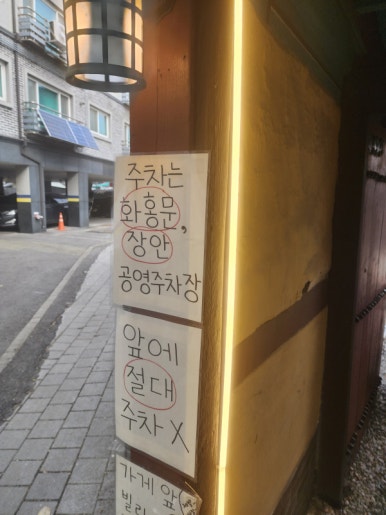 주차는
화홍문,
장안
공영주차장
앞에
절대
주차 X
가게 앞
빌리